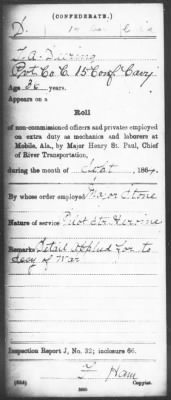 (CONFEDERATE.)
D. 15
T. A. Deering
Pvt Co. C. 15 Conf Cavy
Age 36 years.
Appears on a
Roll
of non-commissioned officers and privates employed
on extra duty as mechanics and laborers at
Mobile, Ala., by Major Henry St. Paul, Chief
of River Transportation,
during the month of Sept, 1864.
By whose order employed Major Stone
Nature of service Pilot Str Heroine
Remarks Detail applied for to
Secy of War
Inspection Report J, No. 32; inclosure 66.
Ham
(654) Copyist.